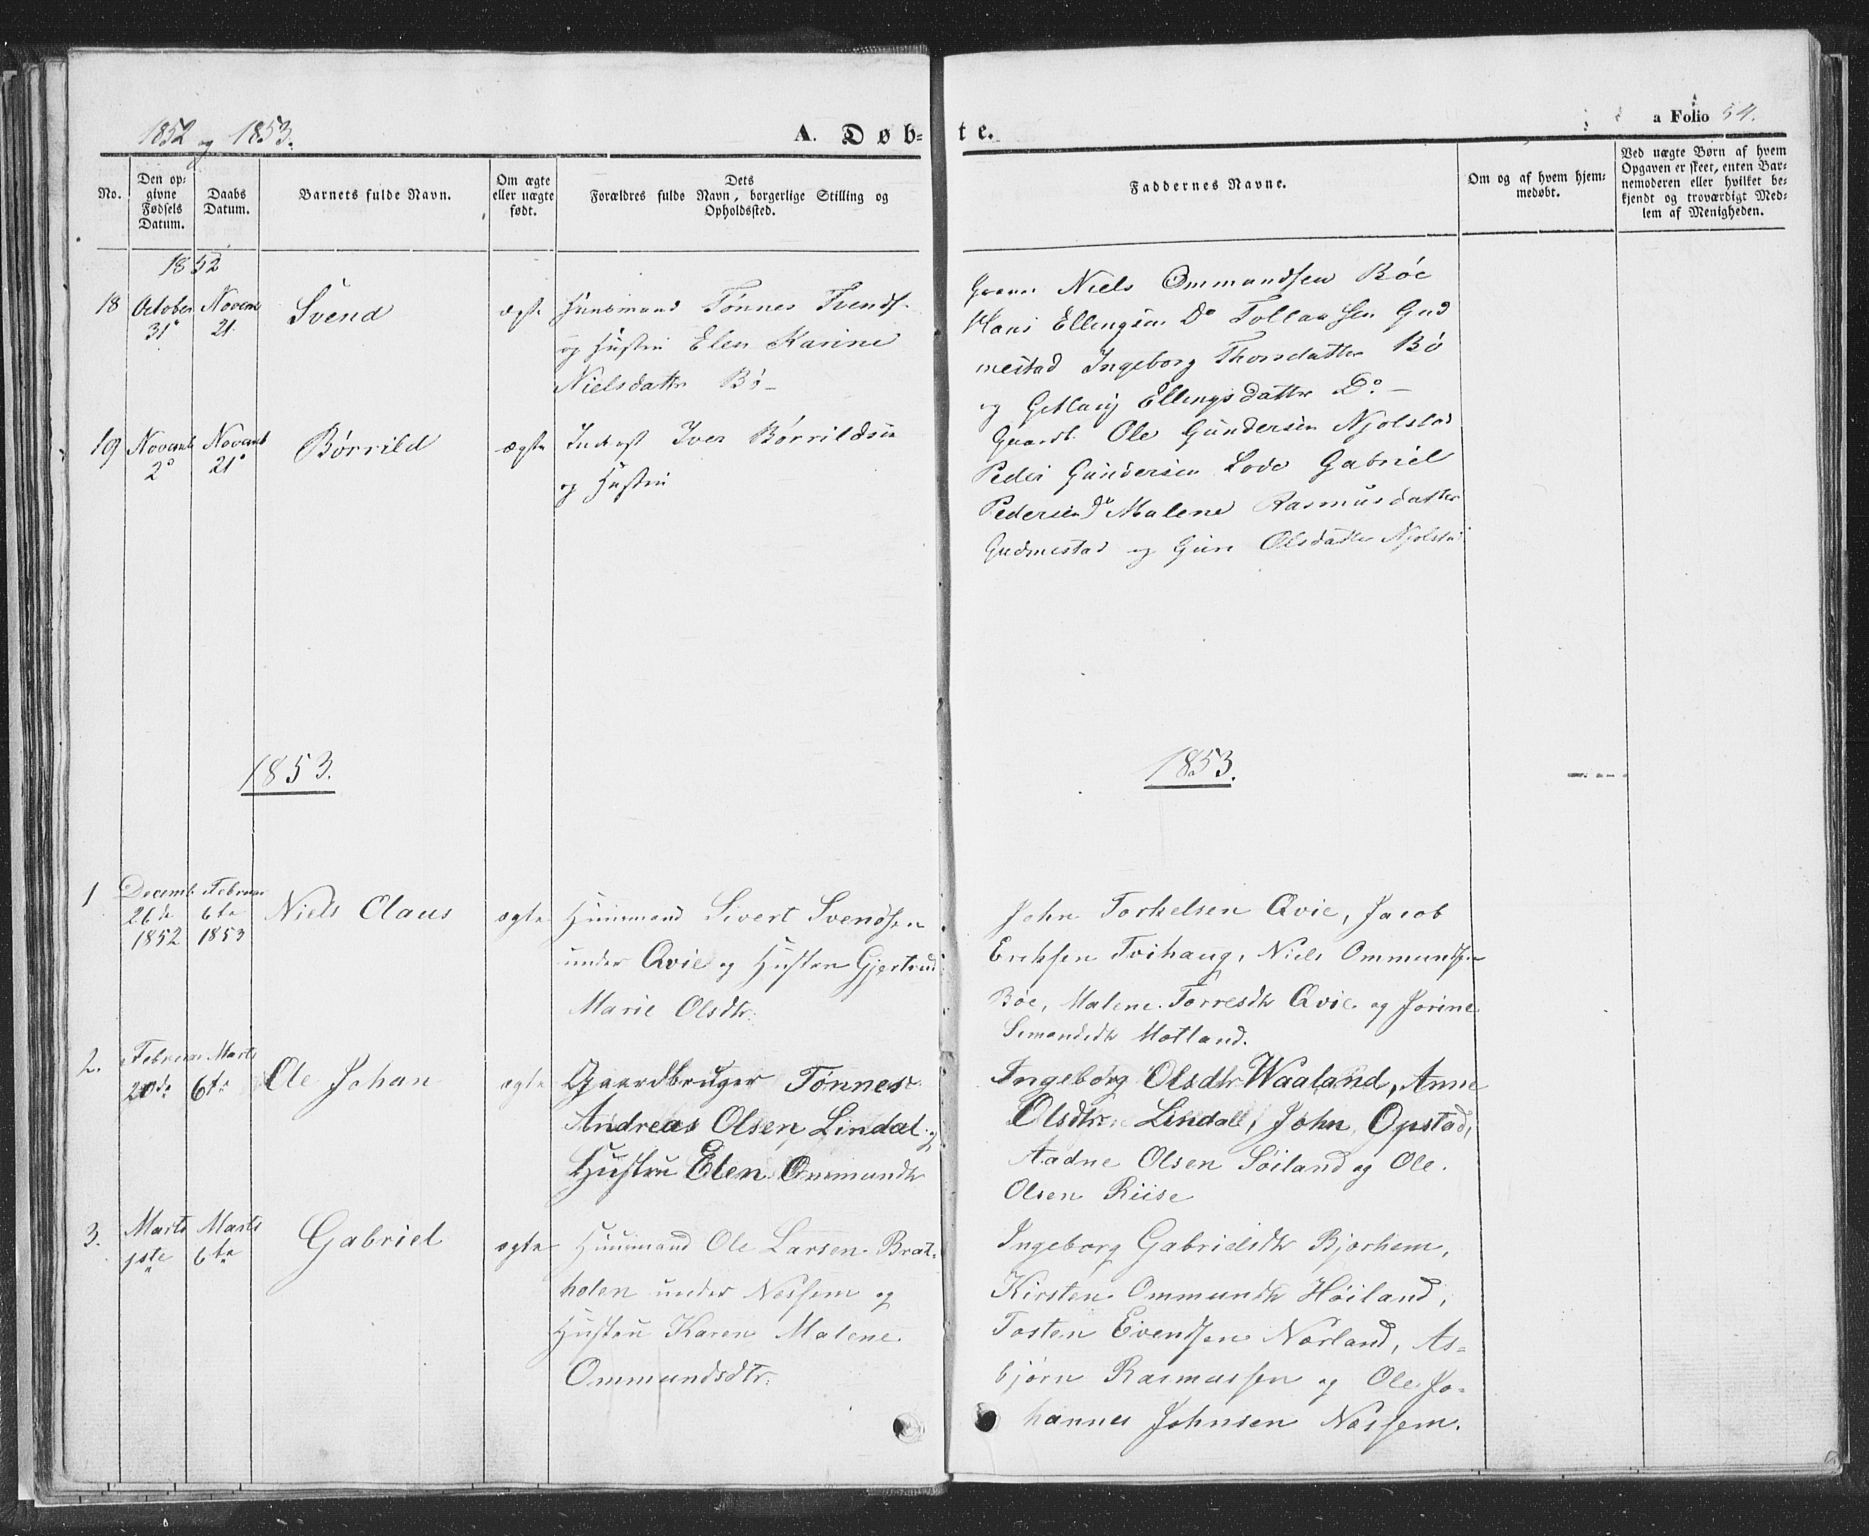 1852 og 1853.
A. Døb-
te.
a Folio 54.
No.
Den op-
givne
Fødsels
Datum.
Daabs
Datum.
Barnets fulde Navn.
Om ægte
eller uægte
født.
Dets
Forældres fulde Navn, borgerlige Stilling og
Opholdssted.
Faddernes Navne.
Om og af hvem hjem-
medøbt.
Ved uægte Børn af hvem
Opgaven er skeet, enten Bar-
nemoderen eller hvilket be-
kjendt og troværdigt Med-
lem af Menigheden.
1852
18 October Novem
31te 21
Svend
ægte
Huusmand Tønnes Svends.
og Hustru Elen Karine
Nielsdattr Bø
Niels Ommundsen Bøe
Hans Ellingsen Do Tollaksen Gud
mestad Ingeborg Thorsdatter Bø
og Ellingsdattr Do
19 Novemb Novemb
2 21
Børrild
ægte
Inderst Iver Børrildsen
og Hustru
Gaardb. Ole Gundersen Njolstad
Peder Gundersen Lode Gabriel
Pedersen Do Malene Rasmusdatter
Gudmestad og Guri Olsdatter Njolstad
1853.
1853.
1 Decemb Februar
26de 6te
1852 1853
Niels Claus
ægte
Huusmand Sivert Svendsen
under Qvie og Hustru Gjertrud
Marie Olsdtr.
John Torkelsen Qvie, Jacob
Eriksen Tvihaug, Niels Ommundsen
Bøe, Malene Torresdtr Qvie og Jorine
Simondsdtr Motland.
2. Februar Marts
20de 6te
Ole Johan
ægte
Gaardbruger Tønnes
Andreas Olsen Lindal og
Hustru Elen Ommundtr
Ingeborg Olsdtr Waaland, Anne
Olsdtr Lindal, John Opstad,
Aadne Olsen Søiland og Ole
Olsen Riise
3. Marts Marts
1ste 6te
Gabriel
ægte
Huusmand Ole Larsen Brat-
holen under Nessem og
Hustru Karen Malene
Ommundsdtr.
Ingeborg Gabrielsdtr Bjorhem,
Kirsten Ommundtr Høiland,
Tosten Evendsen Norland, As-
bjørn Rasmussen og Ole Jo-
hannes Johnsen Nessem.